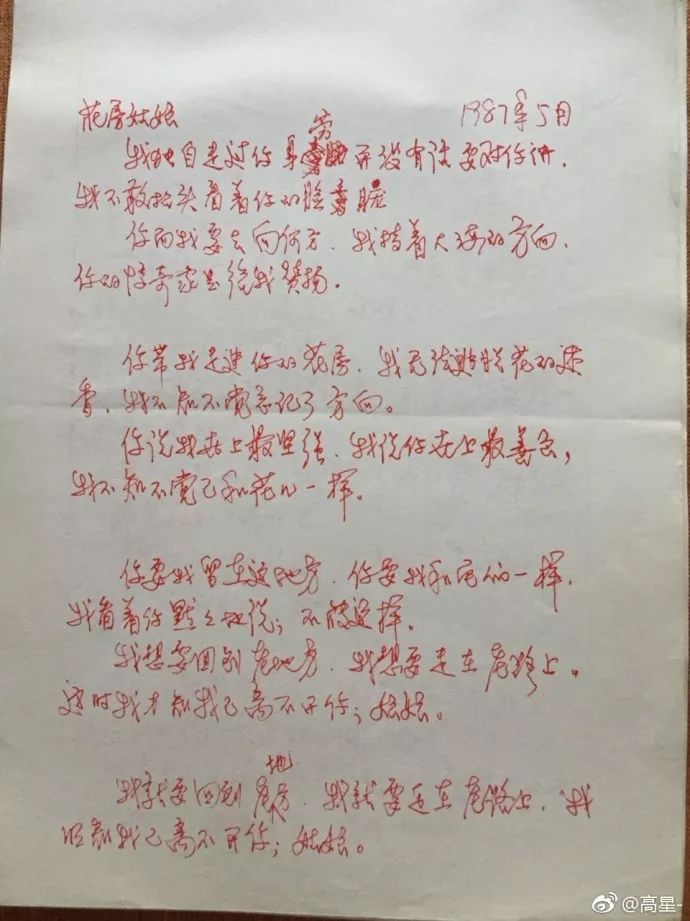 花房姑娘 1987年5月
我独自走过你身旁 并没有话要对你讲.
我不敢抬头看着你的脸庞
你问我要去向何方.我指着大海的方向.
你的惊奇象是给我赞扬.
你带我走进你的花房.我无法逃脱花的迷
香,我不知不觉忘记了方向。
你说我世上最坚强.我说你世上最善良,
我不知不觉已和花儿一样。
你要我留在这地方.你要我和它们一样.
我看着你默默地说;不能这样.
我想要回到老地方.我想要走在老路上。
这时我才知我已离不开你;姑娘。
我就要回到老地方.我就要走在老路上.我
明知我已离不开你;姑娘。
@高星-